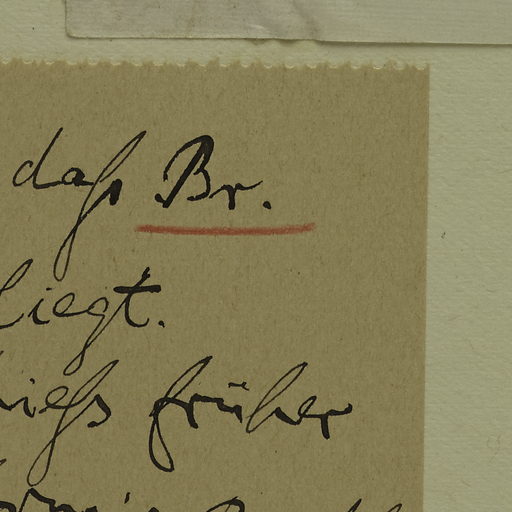 daß Br.
liegt.
hieß früher